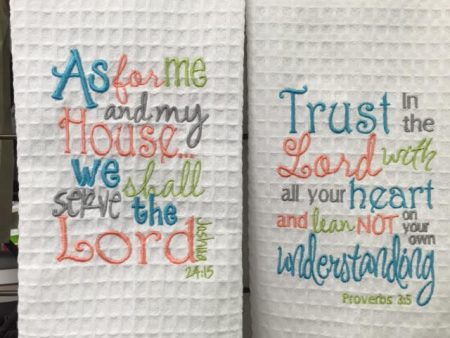 As for me
and my
House...
we shall
serve the
Lord
Joshua
24:15
Trust In
the
Lord with
all your heart
and lean NOT on
your
own
understanding
Proverbs 3:5